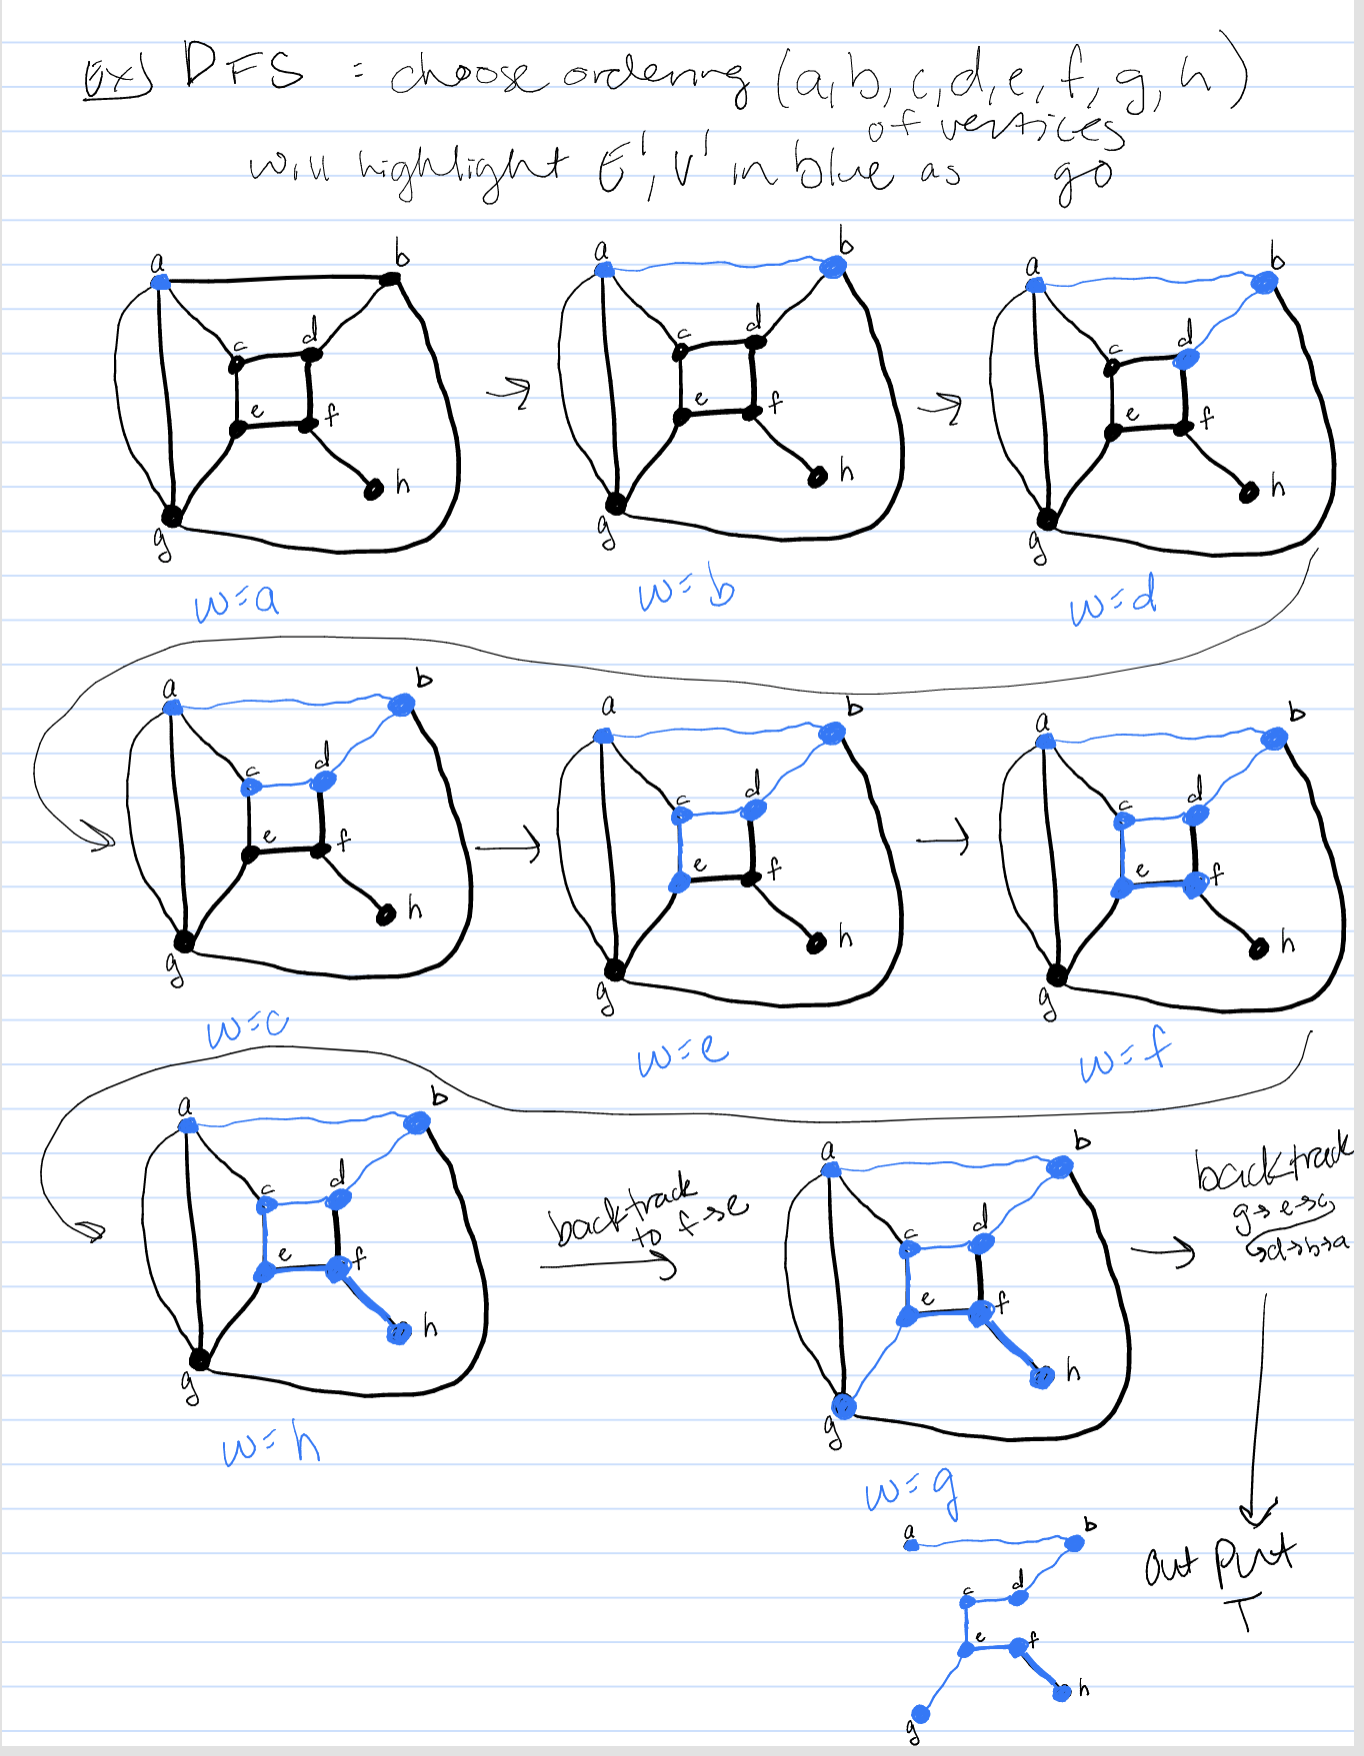 Ex) DFS : choose ordering (a,b,c,d,e,f,g,h)
of vertices
will highlight E', V' in blue as go
a b c d e f g h
w=a
a b c d e f g h
w=b
a b c d e f g h
w=d
a b c d e f g h
w=c
a b c d e f g h
w=e
a b c d e f g h
w=f
a b c d e f g h
w=h
backtrack
to f→e
a b c d e f g h
w=g
backtrack
g→e→c
↳d→b→a
output
T
a b c d e f g h